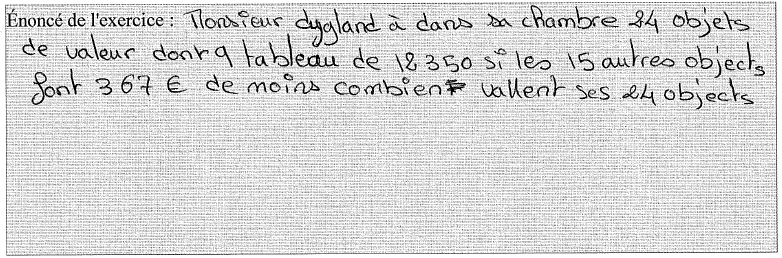 Énoncé de l'exercice : Monsieur dygland à dans sa chambre 24 objets
de valeur dont 9 tableau de 12 350 si les 15 autres objects
font 367 € de moins combien vallent ses 24 objects